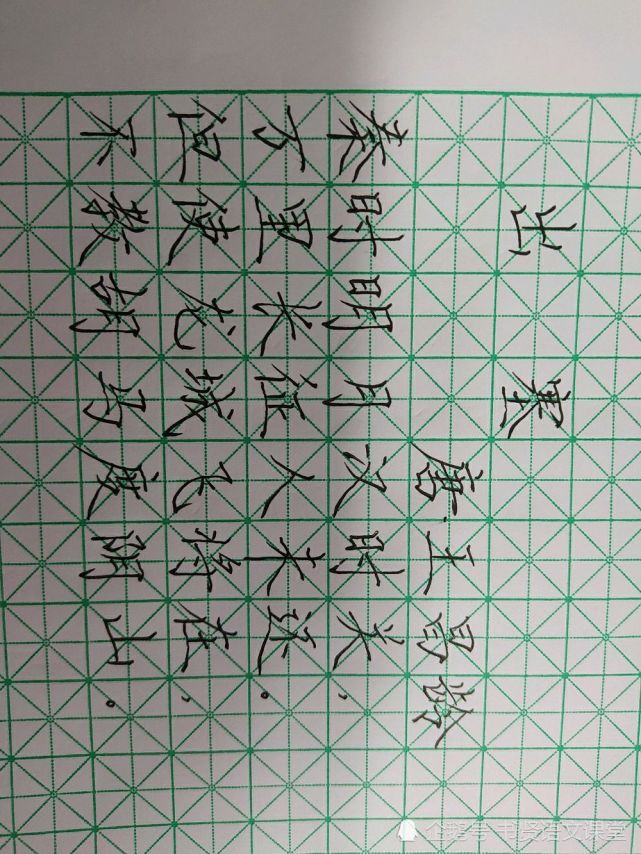 出塞
唐·王昌龄
秦时明月汉时关，
万里长征人未还。
但使龙城飞将在，
不教胡马度阴山。
企鹅号 语文课堂